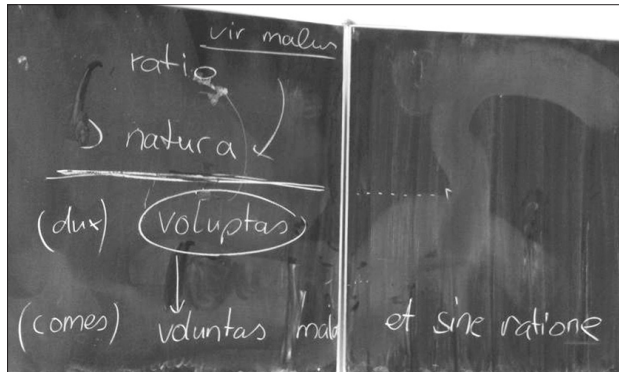 vir malus
ratio
natura
(dux) voluptas
(comes) voluntas mala et sine ratione